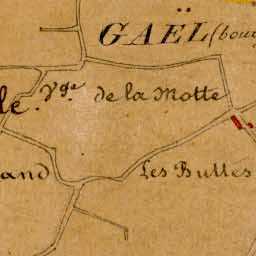 GAËL (bou
le Vge de la Motte
and Les Buttes